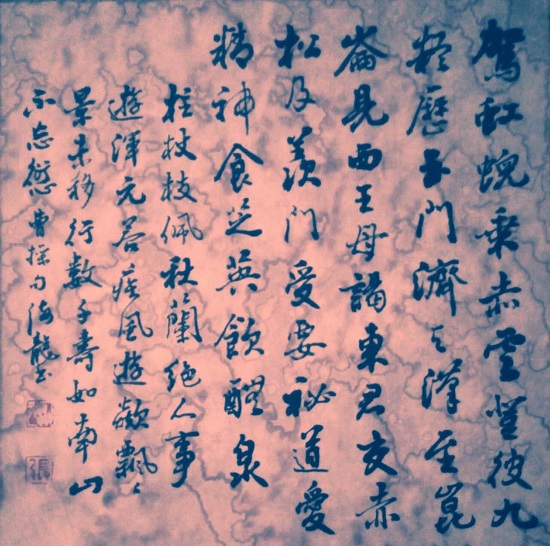 駕虹蜺乘赤雲登彼九
疑歷玉門濟天漢至崑
崙見西王母謁東君交赤
松及羨門受要祕道愛
精神食芝英飲醴泉
柱杖枝佩秋蘭絕人事
遊渾元若疾風遊欻飄〻
景未移行數千壽如南山
不忘愆 曹操句 海龍書
張